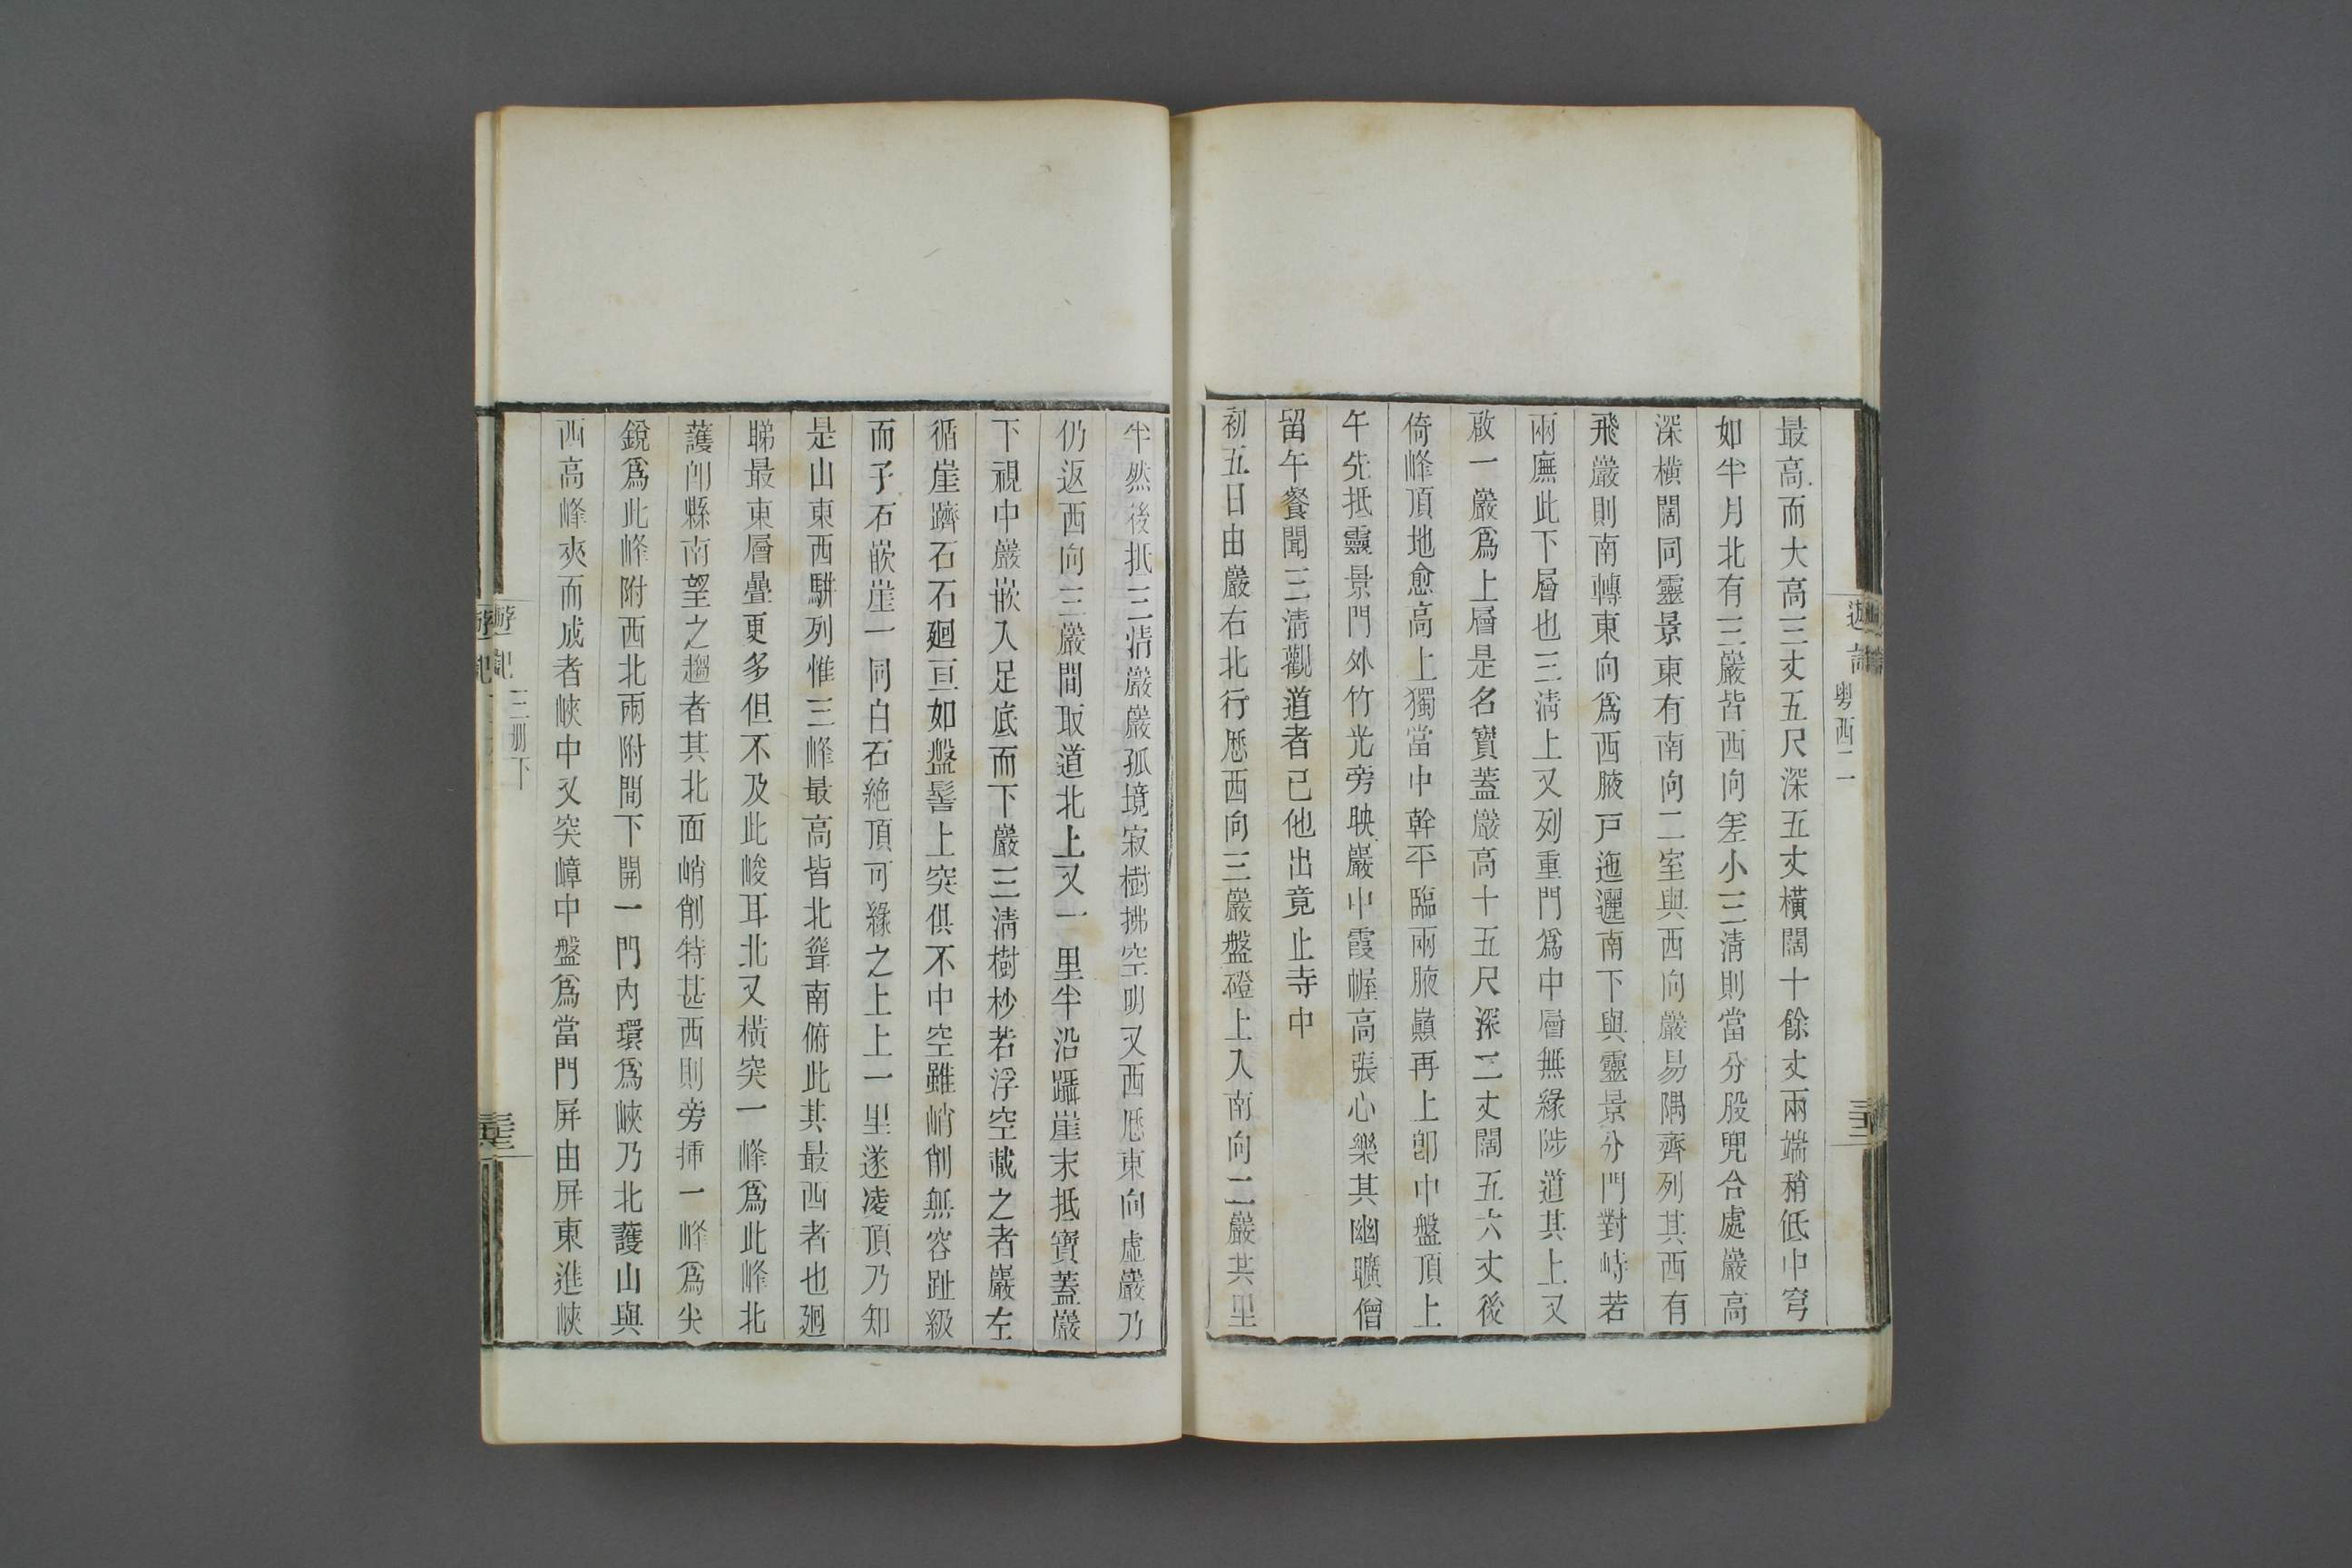 遊記
粵西二
最高而大高三丈五尺深五丈橫闊十餘丈兩端稍低中穹
如半月北有三巖皆西向差小三淸則當分股兜合處巖高
深橫闊同靈景東有南向二室與西向巖易隅齊列其西有
飛巖則南轉東向爲西腋戸迤邐南下與靈景分門對峙若
兩廡此下層也三淸上又列重門爲中層無緣陟道其上又
啟一巖爲上層是名寶蓋巖高十五尺深二丈闊五六丈後
倚峰頂地愈高上獨當中幹平臨兩腋巔再上卽中盤頂上
午先抵靈景門外竹光旁映巖中霞幄高張心樂其幽曠僧
留午餐聞三淸觀道者已他出竟止寺中
初五日由巖右北行歷西向三巖盤磴上入南向二巖共里
半然後抵三淸巖巖孤境寂樹拂空明又西歷東向虛巖乃
仍返西向三巖間取道北上又一里半沿躡崖末抵寶蓋巖
下視中巖嵌入足底而下巖三淸樹杪若浮空載之者巖左
循崖躋石石廻亘如盤髻上突俱不中空雖峭削無容趾級
而子石嵌崖一同白石絶頂可緣之上上一里遂凌頂乃知
是山東西駢列惟三峰最高皆北聳南俯此其最西者也廻
睇最東層疊更多但不及此峻耳北又橫突一峰爲此峰北
護卽縣南望之趨者其北面峭削特甚西則旁揷一峰爲尖
銳爲此峰附西北兩附間下開一門内環爲峽乃北護山與
西高峰夾而成者峽中又突嶂中盤爲當門屏由屏東進峽
遊記
三册下